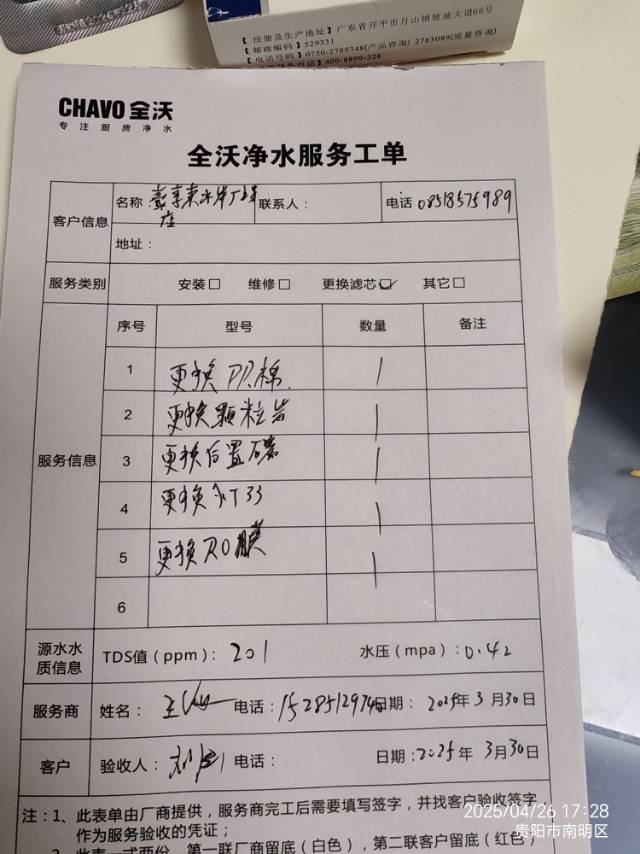 【注册及生产地址】广东省开平市月山镇披迪大道66号
【邮政编码】529331
【电话号码】0750-2789348(产品咨询) 2763089(质量咨询)
400-8899-328
CHAVO 全沃
专注厨房净水
全沃净水服务工单
客户信息 名称 联系人： 电话 08518575989
店
地址：
服务类别 安装□ 维修□ 更换滤芯☑ 其它□
服务信息 序号 型号 数量 备注
1 更换PP棉. 1
2 更换颗粒 1
3 更换后置碳 1
4 更换 T33 1
5 更换RO膜 1
6
源水水质信息 TDS值（ppm）：201 水压（mpa）：0.42
服务商 姓名： 电话： 日期：2025年3月30日
客户 验收人： 电话： 日期：2025年3月30日
注：1、此表单由厂商提供，服务商完工后需要填写签字，并找客户验收签字
作为服务验收的凭证；
2、此表一式两份，第一联厂商留底（白色），第二联客户留底（红色）
2025/04/26 17:28
贵阳市南明区